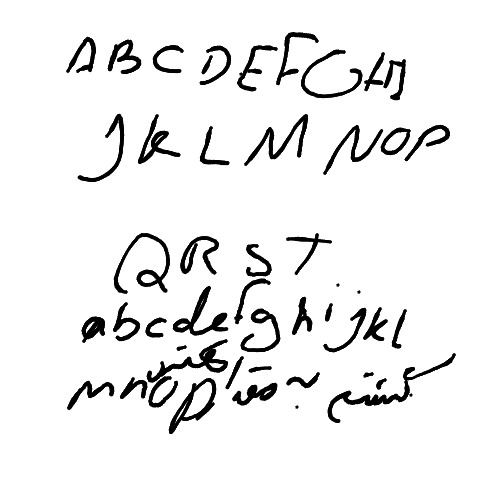 ABCDEFGHI
JKLMNOP
QRST
abcdefghijkl
mnop